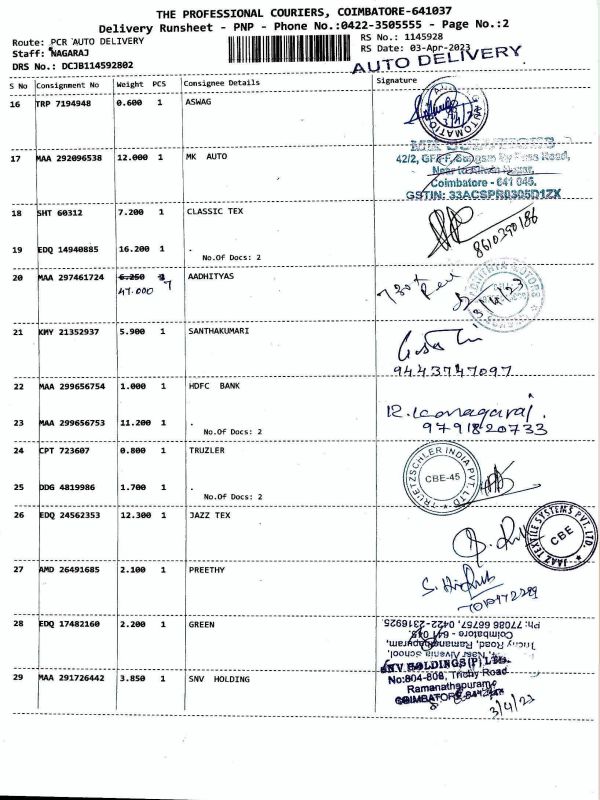 THE PROFESSIONAL COURIERS, COIMBATORE-641037
Delivery Runsheet - PNP - Phone No.:0422-3505555 - Page No.:2
Route: PCR AUTO DELIVERY
RS No.: 1145928
Staff: NAGARAJ
RS Date: 03-Apr-2023
DRS No.: DCJB114592802
AUTO DELIVERY
S No Consignment No Weight PCS Consignee Details Signature
16 TRP 7194948 0.600 1 ASWAG
17 MAA 292096538 12.000 1 MK AUTO
42/2, GFF-F, Sungam By Pass Road,
Near to Nirmala Nagar,
Coimbatore - 641 045.
GSTIN: 33ACSPR0305D1ZX
18 SHT 60312 7.200 1 CLASSIC TEX
19 EDQ 14940885 16.200 1 .
No.Of Docs: 2
8610390186
20 MAA 297461724 6.250 AADHITYAS
47.000 7
3/4/23
21 KMY 21352937 5.900 1 SANTHAKUMARI
9443747097
22 MAA 299656754 1.000 1 HDFC BANK
R. Kanagaraj.
23 MAA 299656753 11.200 1 .
No.Of Docs: 2
9791820733
24 CPT 723607 0.800 1 TRUZLER
TRUETZSCHLER INDIA PVT. LTD
CBE-45
25 DDG 4819986 1.700 1 .
No.Of Docs: 2
26 EDQ 24562353 12.300 1 JAZZ TEX
JAAZ TEXTILE SYSTEMS PVT. LTD.
CBE
27 AMD 26491685 2.100 1 PREETHY
28 EDQ 17482160 2.200 1 GREEN
Ph: 77086 66757, 0422-2316925
Coimbatore - 641 045.
Trichy Road, Ramanathapuram,
29 MAA 291726442 3.850 1 SNV HOLDING
SNV HOLDINGS (P) LTD.
No:804-806, Trichy Road
Ramanathapuram
COIMBATORE
3/4/23